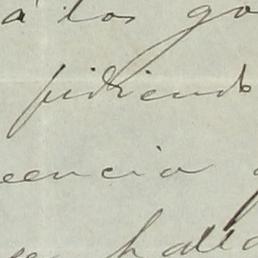 á los go
pidiendo
cencia
se halla